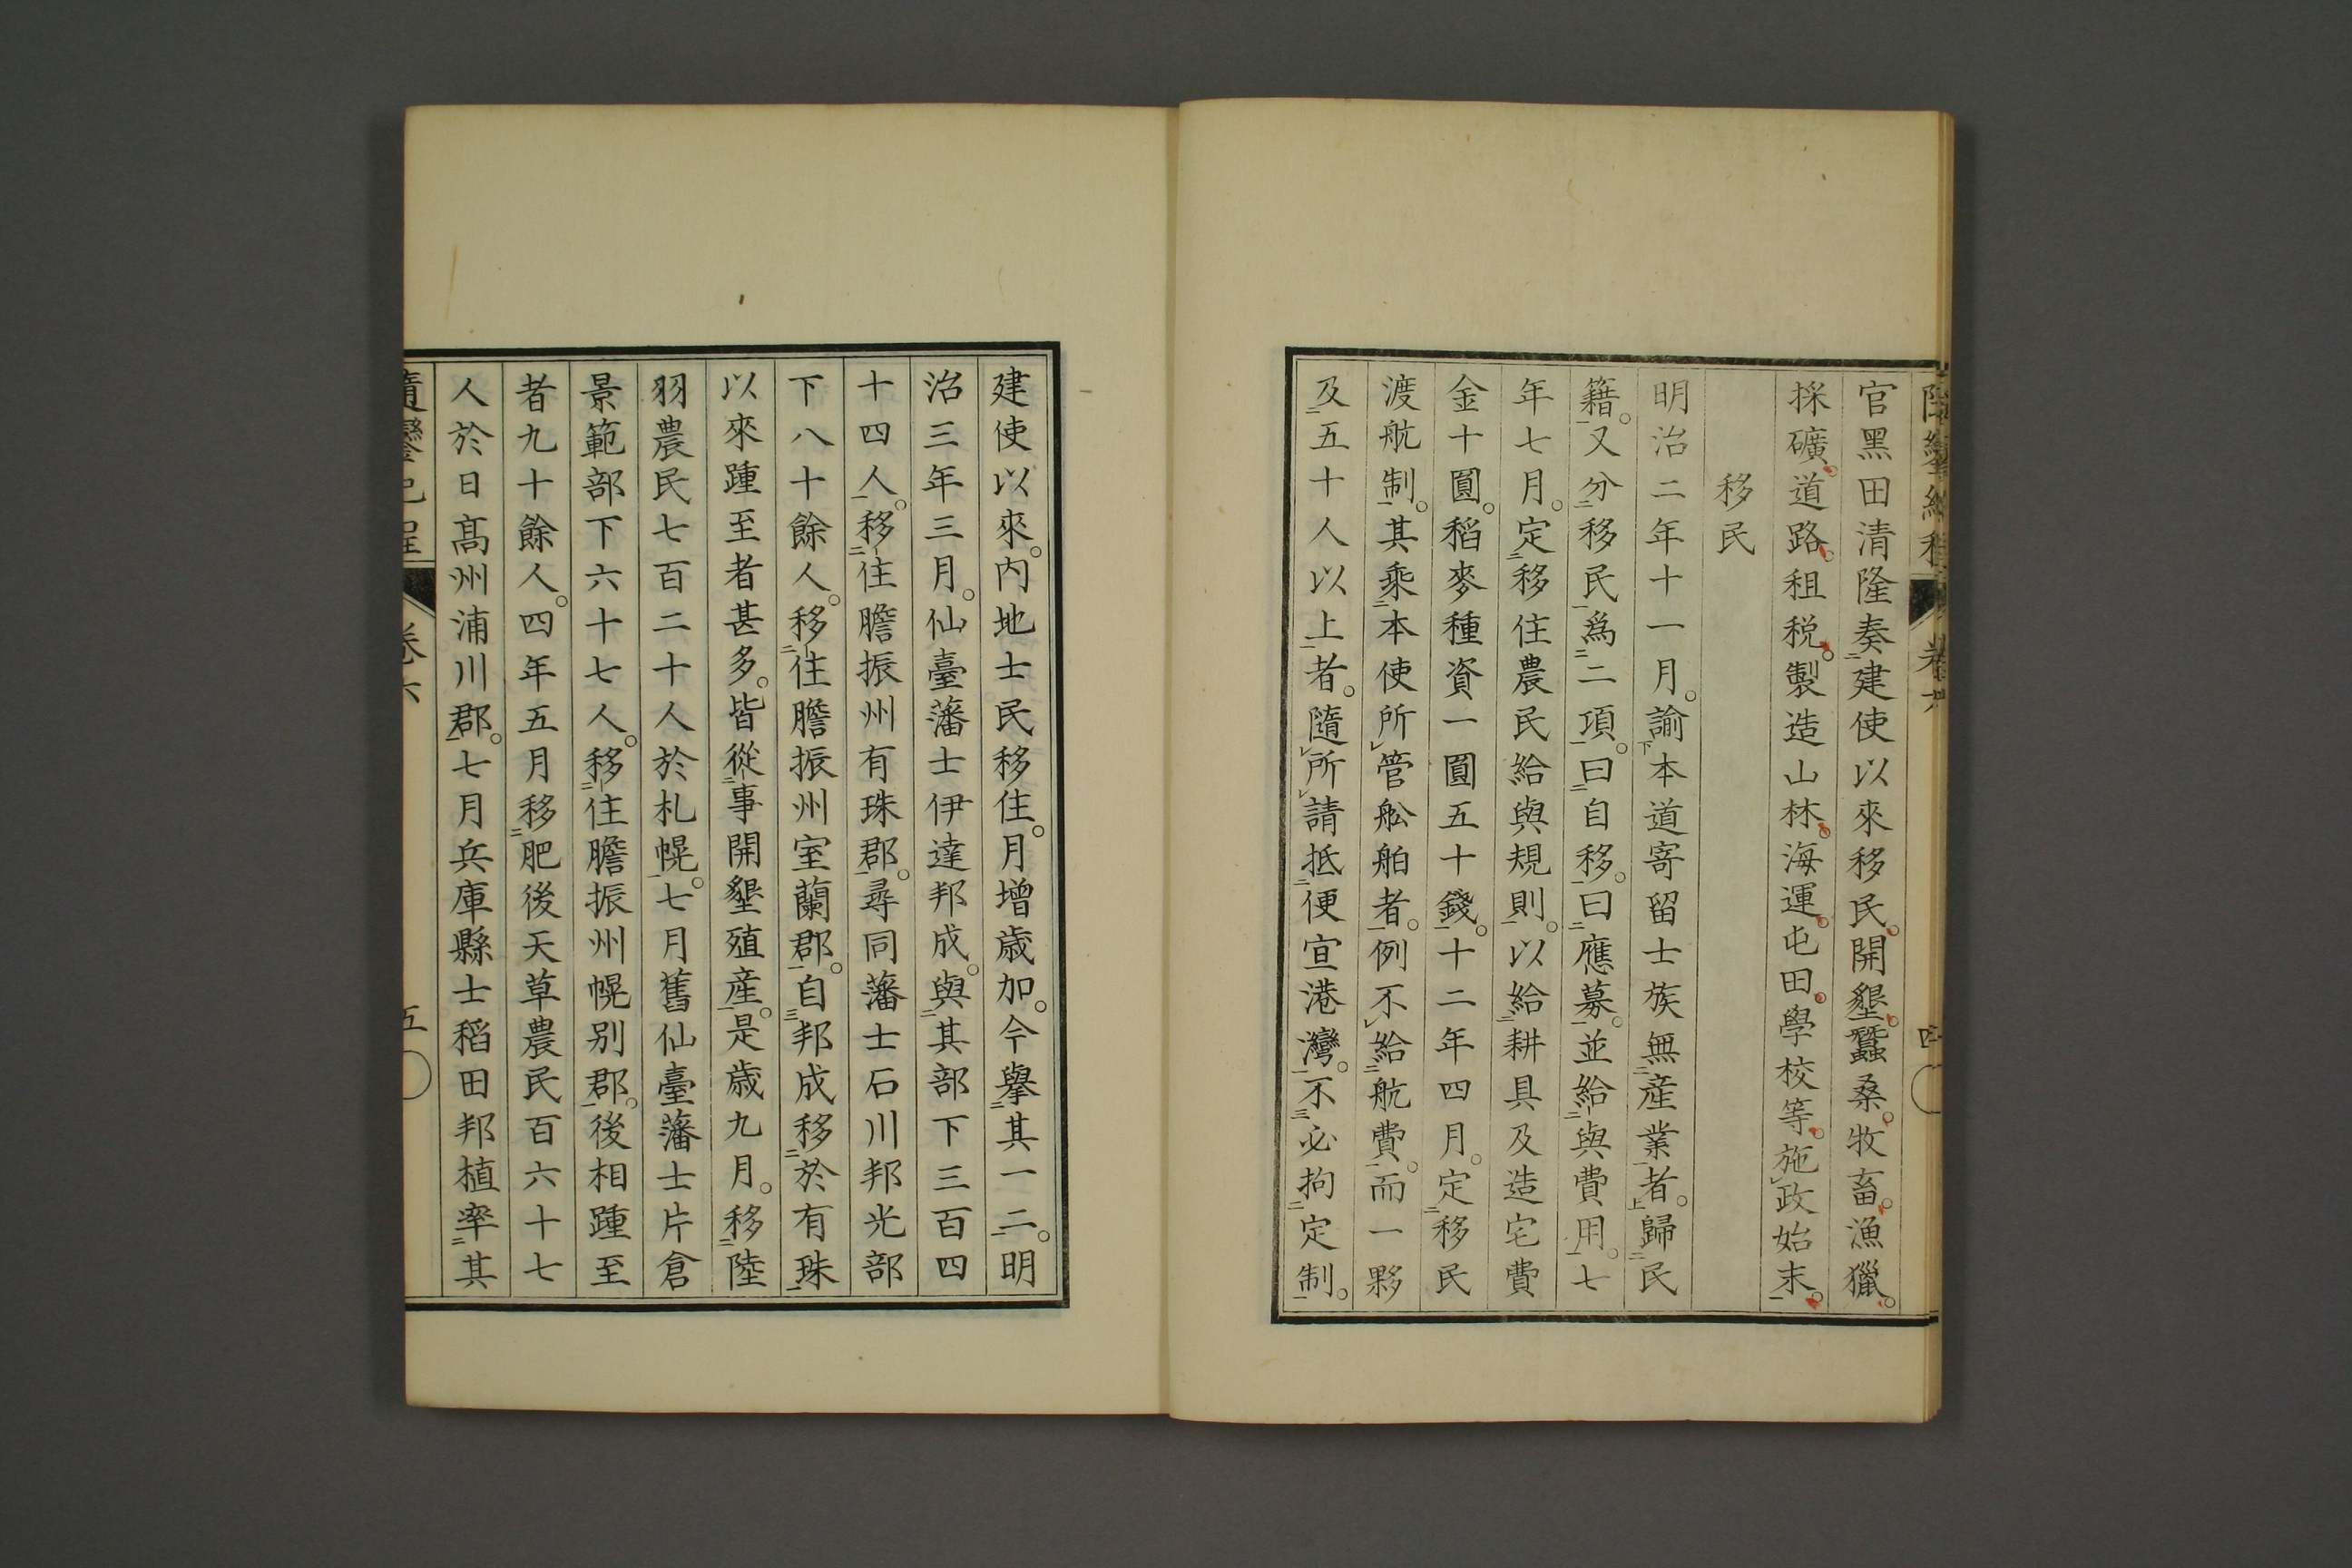 官黑田清隆奏建使以來移民。開墾。蠶桑。牧畜。漁獵。
採礦。道路。租税。製造山林。海運。屯田。學校等。施政始末。
移民
明治二年十一月。諭本道寄留士族無產業者。歸民
籍。又分移民爲二項。曰自移。曰應募。並給與費用。七
年七月。定移住農民給與規則。以給耕具及造宅費
金十圓。稻麥種資一圓五十錢。十二年四月。定移民
渡航制。其乘本使所管舩舶者。例不給航費。而一夥
及五十人以上者。隨所請抵便宜港灣。不必拘定制。
建使以來。内地士民移住。月增歲加。今擧其一二。明
治三年三月。仙臺藩士伊達邦成。與其部下三百四
十四人。移住膽振州有珠郡。尋同藩士石川邦光部
下八十餘人。移住膽振州室蘭郡。自邦成移於有珠
以來踵至者甚多。皆從事開墾殖產。是歲九月。移陸
羽農民七百二十人於札幌。七月舊仙臺藩士片倉
景範部下六十七人。移住膽振州幌别郡。後相踵至
者九十餘人。四年五月移肥後天草農民百六十七
人於日髙州浦川郡。七月兵庫縣士稻田邦植率其
隨鑾紀程 卷六 五